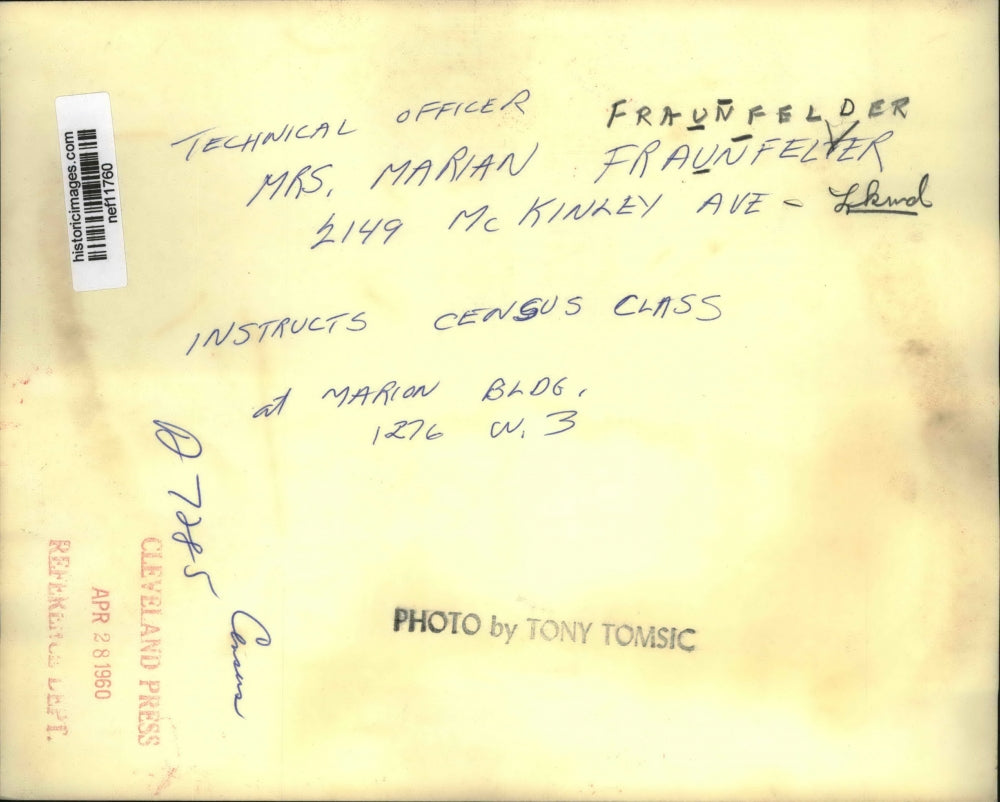 historicimages.com
nef11760
TECHNICAL OFFICER FRAUNFELDER
MRS. MARIAN FRAUNFELDER
2149 McKINLEY AVE - Lkwd
INSTRUCTS CENSUS CLASS
at MARION BLDG.
1276 W. 3
7285
Census
CLEVELAND PRESS
APR 28 1960
REFERENCE DEPT.
PHOTO by TONY TOMSIC